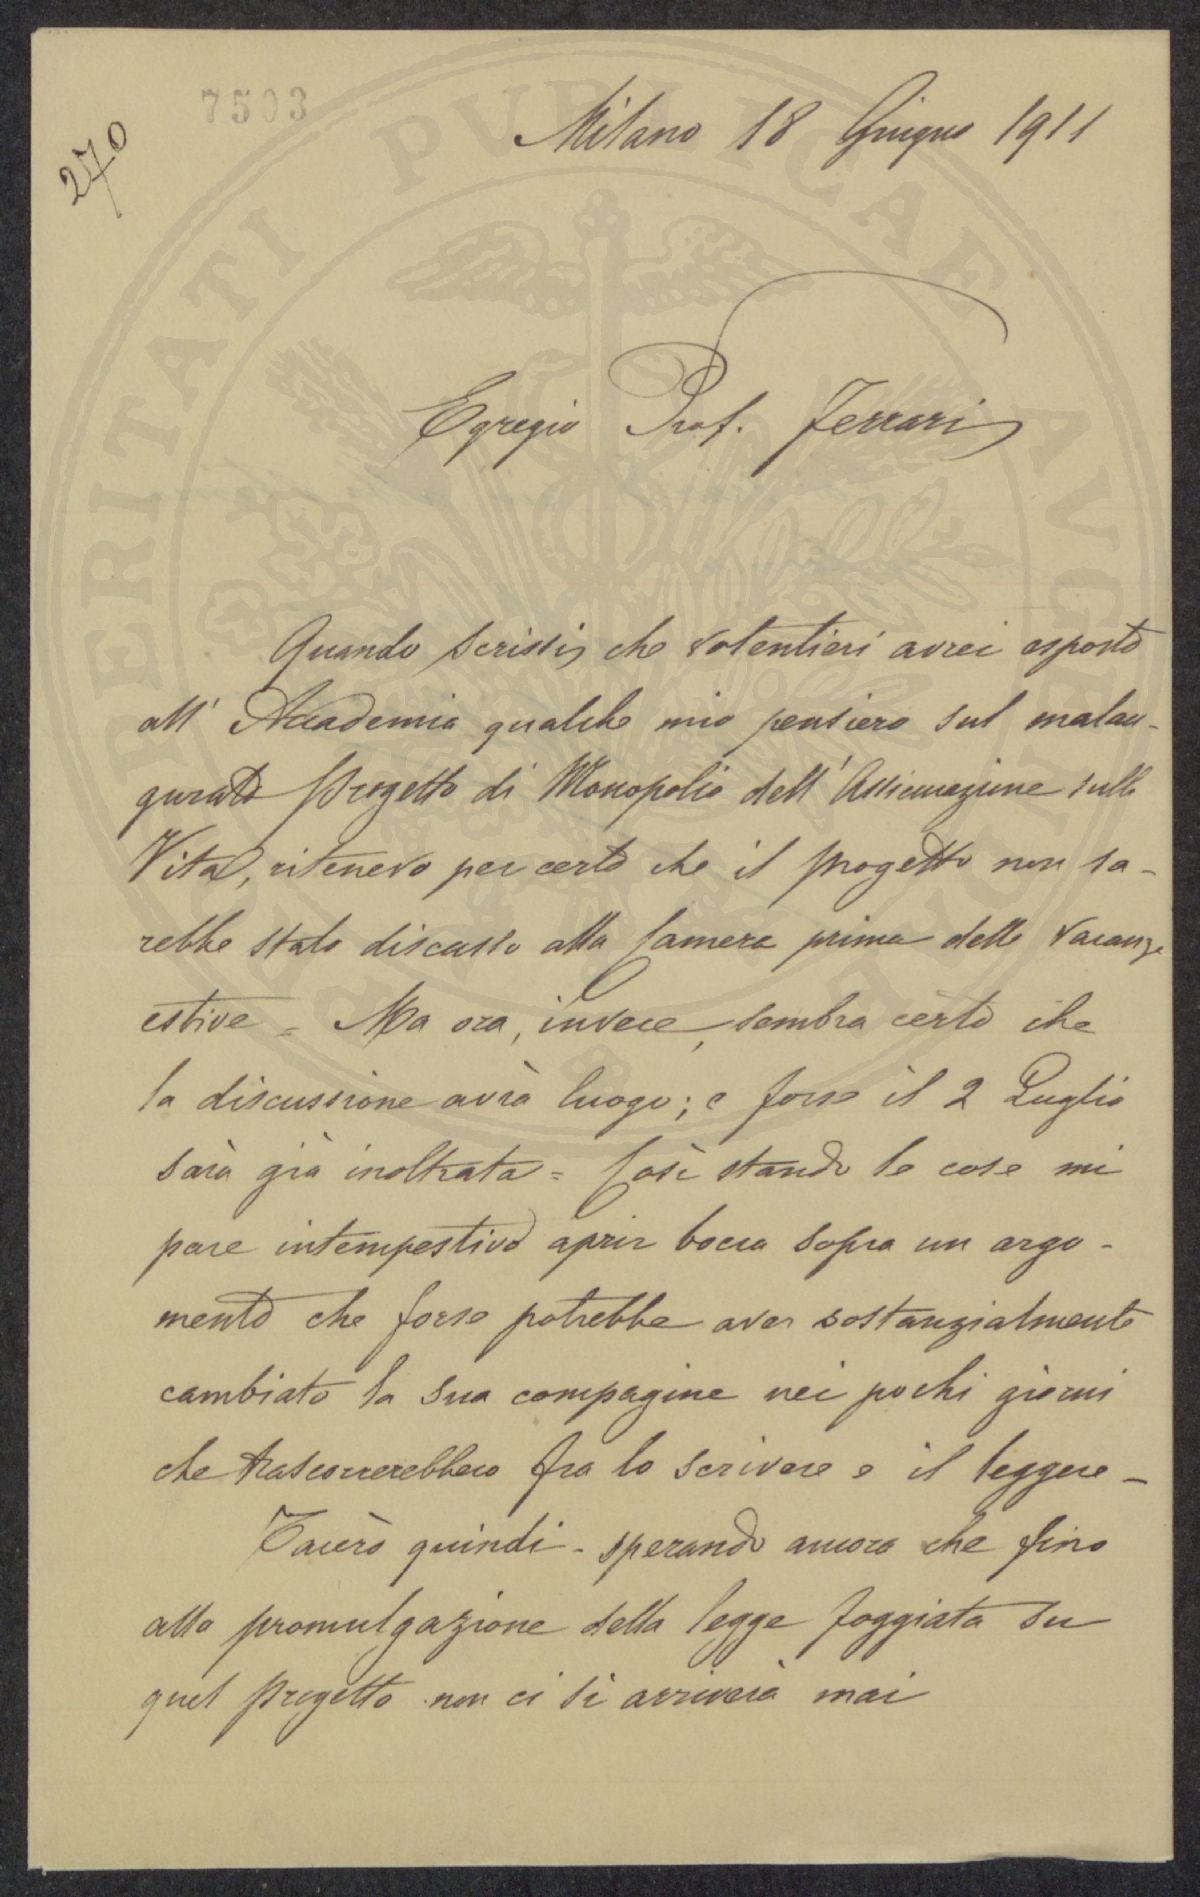 7503
270
Milano 18 Giugno 1911
Egregio Prof. Ferrari
Quando scrissi, che volentieri avrei esposto
all' Accademia qualche mio pensiero sul malau-
gurato progetto di Monopolio dell' Assicurazione sulla
Vita, ritenevo per certo che il progetto non sa-
rebbe stato discusso alla Camera prima delle Vacanze
estive = Ma ora, invece, sembra certo che
la discussione avrà luogo; e forse il 2 Luglio
sarà già inoltrata = Così stando le cose mi
pare intempestivo aprir bocca sopra un argo-
mento che forse potrebbe aver sostanzialmente
cambiato la sua compagine nei pochi giorni
che trascorrerebbero fra lo scrivere e il leggere -
Tacerò quindi - sperando ancora che fino
alla promulgazione della legge foggiata su
quel progetto non ci si arriverà mai
PROSPERITATI PUBLICAE AUGENDAE